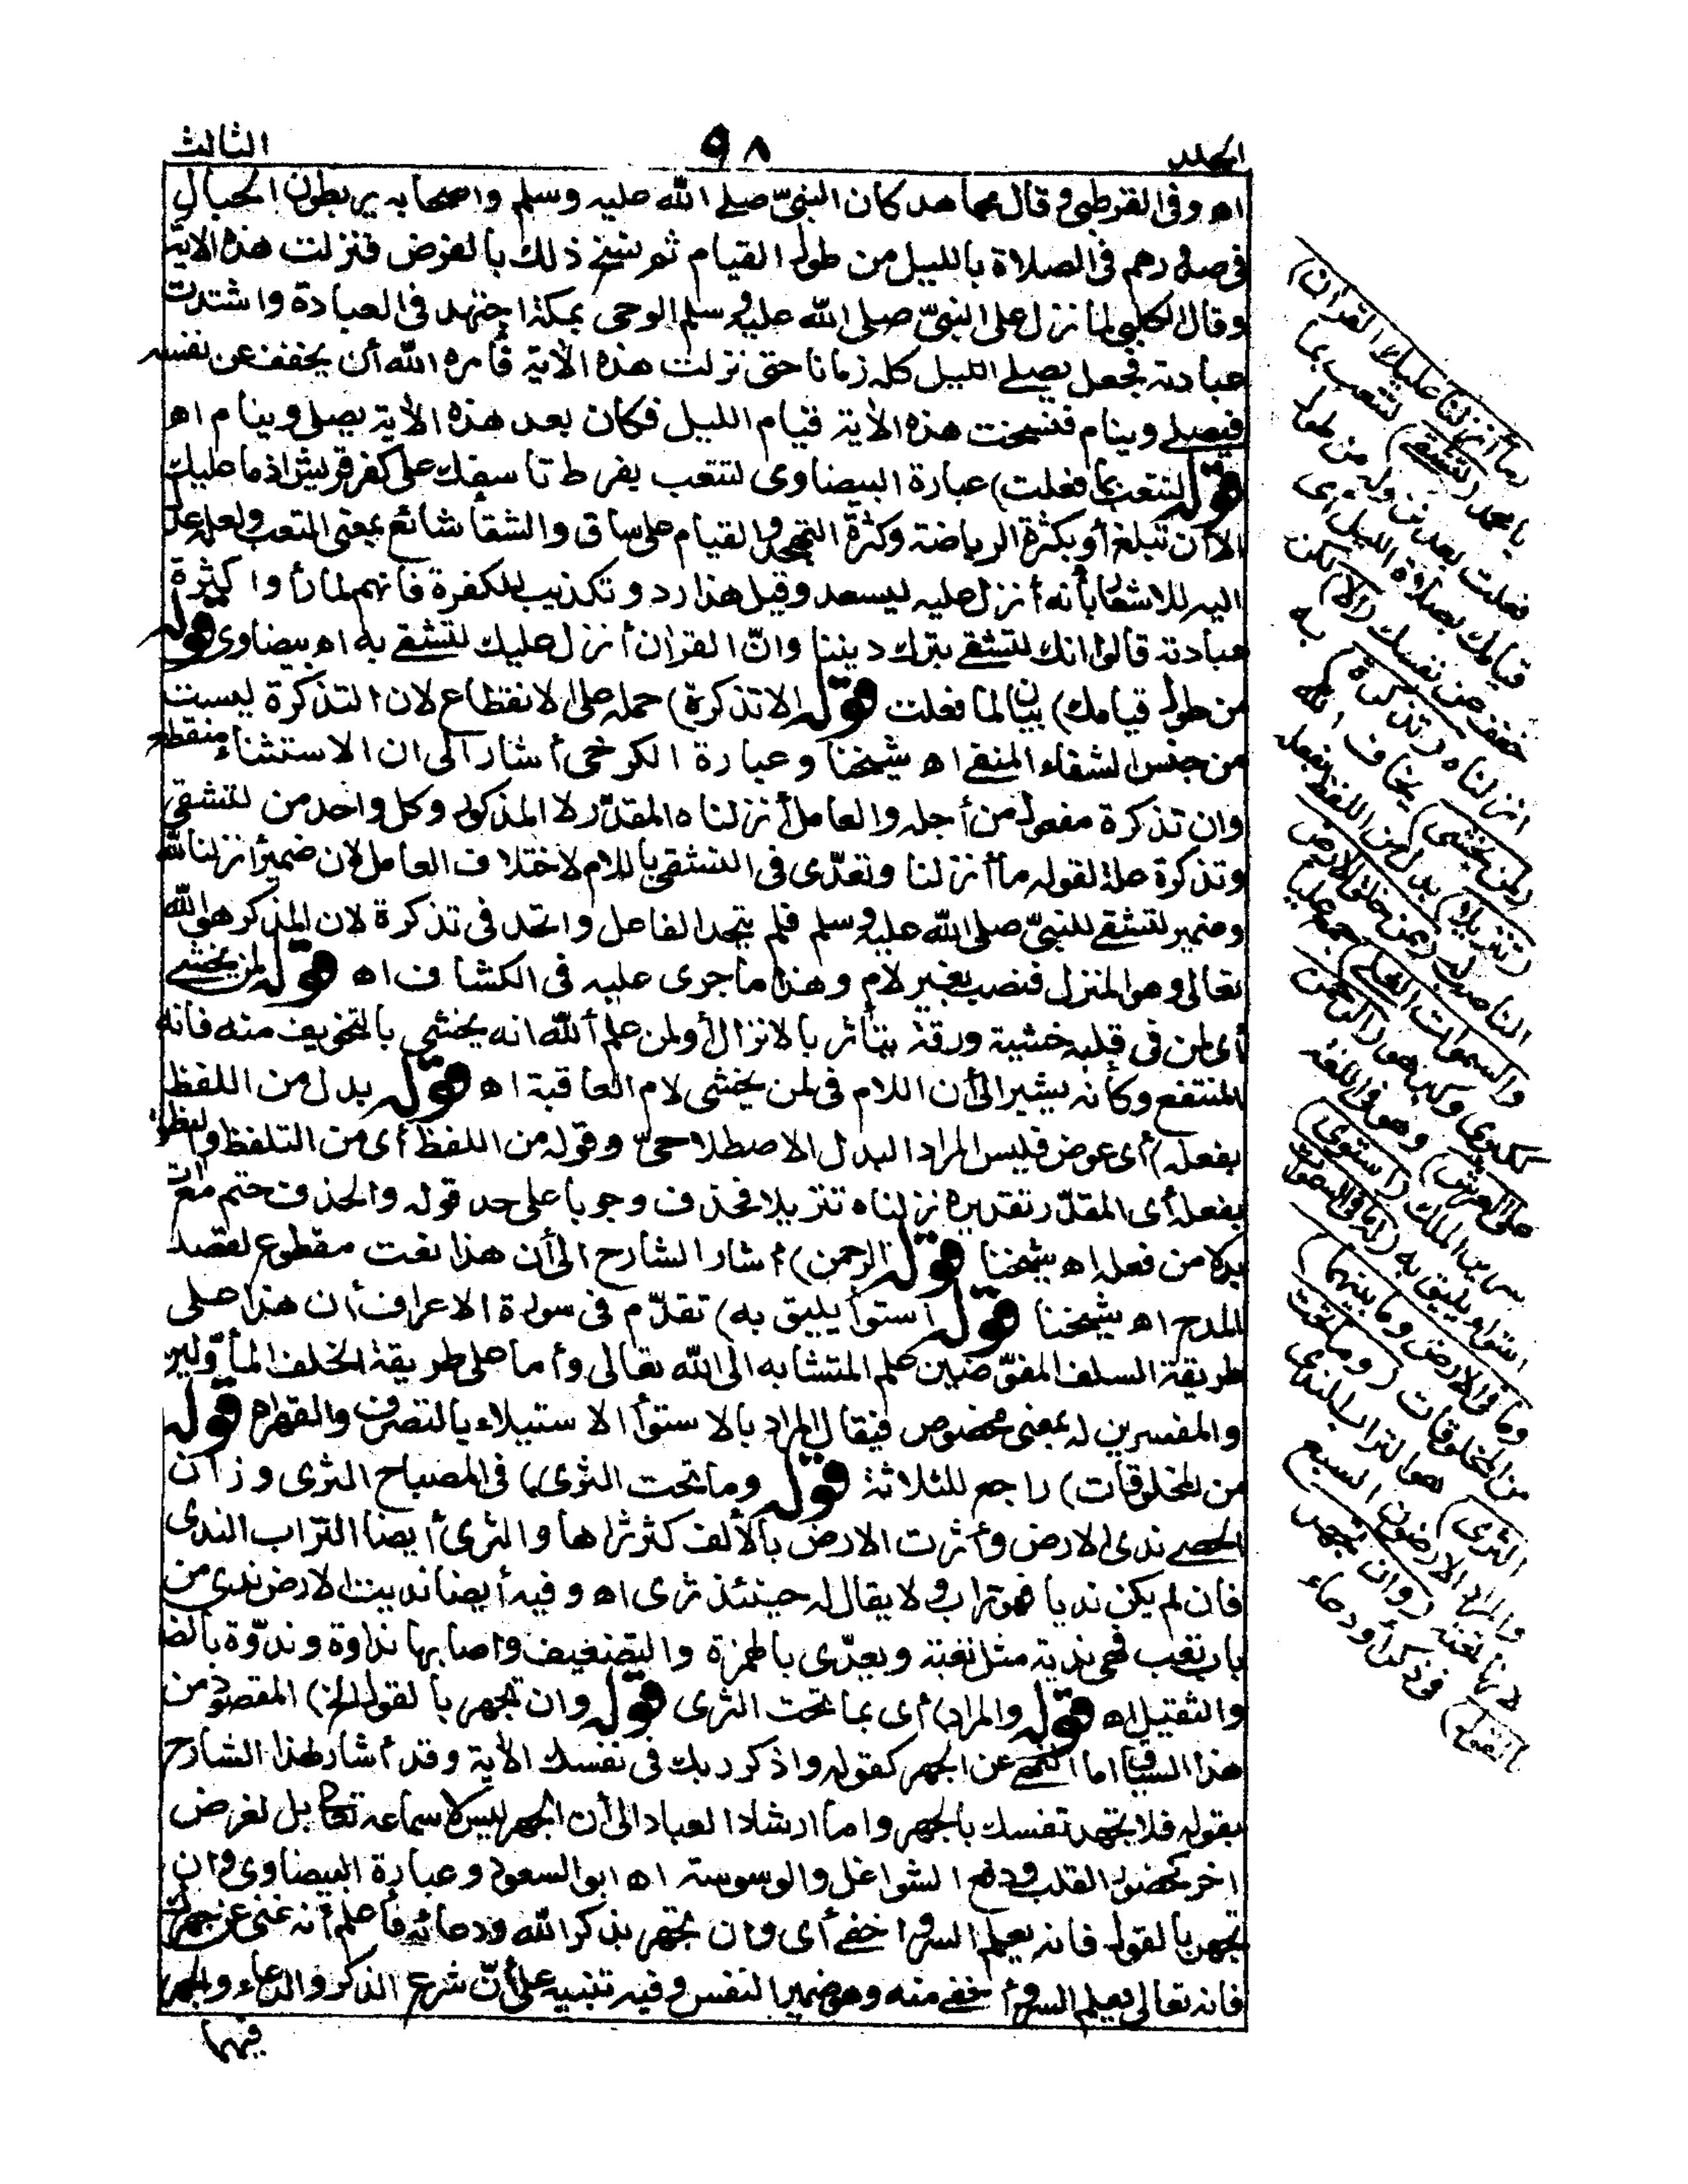 المجلد ٩٨ الثالث
اه وفى القرطبى وقال مجاهد كان النبىّ صلى الله عليه وسلم واصحابه يربطون الحبال
فى صدورهم فى الصلاة بالليل من طول القيام ثم نسخ ذلك بالفرض فنزلت هذه الاية
وقال الكلبى لما نزل على النبىّ صلى الله عليه وسلم الوحى بمكة اجتهد فى العبادة واشتدت
عبادته فجعل يصلى الليل كله زمانا حتى نزلت هذه الأية فأمره الله أن يخفف عن نفسه
فيصلى وينام فنسخت هذه الأية قيام الليل فكان بعد هذه الأية يصلى وينام اه
قوله لتتعب بما فعلت) عبارة البيضاوى لتتعب بفرط تأسفك على كفر قريش اذ ما عليك
الا أن تبلغ أو بكثرة الرياضة وكثرة التهجد والقيام على ساق والشقاء شائع بمعنى التعب ولعله عدل
اليه للاشعار بأنه أنزل عليه ليسعد وقيل هذا رد وتكذيب للكفرة فانهم لما رأوا كثرة
عبادته قالوا انك لتشقى بترك ديننا وانّ القران أنزل عليك لتشقى به اه بيضاوى قوله
من طول قيامك) بيان لما فعلت قوله الا تذكرة) حمله على الانقطاع لان التذكرة ليست
من جنس الشقاء المنفى اه شيخنا وعبارة الكرخى أشار الى ان الاستثناء منقطع
وان تذكرة مفعول من أجله والعامل أنزلناه المقدّر لا المذكور وكل واحد من لتشقى
وتذكرة علة لقوله ما أنزلنا وتعدّى فى لتشقى باللام لاختلاف العامل لان ضمير أنزلنا لله
وضمير لتشقى للنبىّ صلى الله عليه وسلم فلم يتحد الفاعل واتحد فى تذكرة لان المذكر هو الله
تعالى وهو المنزل فنصب بغير لام وهذا ما جرى عليه فى الكشاف اه قوله لمن يخشى
أى لمن فى قلبه خشية ورقة يتأثر بالانزال أو لمن علم الله انه يخشى بالتخويف منه فانه
المنتفع وكأنه يشير الى أن اللام فى لمن يخشى لام العاقبة اه قوله بدل من اللفظ
بفعله) أى عوض فليس المراد البدل الاصطلاحىّ وقوله من اللفظ أى من التلفظ
بفعله أى المقدّر تقديره نزلناه تنزيلا فحذف وجوبا على حد قوله والحذف حتم مع ات
بدلا من فعله اه شيخنا قوله الرحمن) أشار الشارح الى أن هذا نعت مقطوع لقصد
المدح اه شيخنا قوله استواء يليق به) تقدّم فى سورة الاعراف أن هذا على
طريقة السلف المفوّضين علم المتشابه الى الله تعالى وأما على طريقة الخلف المأوّلين
والمفسرين له بمعنى مخصوص فيقال المراد بالاستواء الاستيلاء بالتصرف والقهر اه قوله
من المخلوقات) راجع للثلاثة قوله وما تحت الثرى) فى المصباح الثرى وزان
الحصى ندى الارض وأثرت الارض بالألف كثر ثراها والثرى أيضا التراب الندى
فان لم يكن نديا فهو تراب ولا يقال له حينئذ ثرى اه وفيه أيضا نديت الارض ندى من
باب تعب فهى ندية مثل تعبة ويعدّى بالهمزة والتضعيف واصابها نداوة وندوّة بالضم
والتثقيل اه قوله والمراد) أى بما تحت الثرى قوله وان تجهر بالقول الخ) المقصود من
هذا السياق اما النهى عن الجهر كقوله واذكر ربك فى نفسك الأية وقد أشار لهذا الشارح
بقوله فلا تجهد نفسك بالجهر واما ارشاد العباد الى أن الجهر ليس لاسماعه تعالى بل لغرض
اخر كحضور القلب ودفع الشواغل والوسوسة اه ابو السعود وعبارة البيضاوى وان
تجهر بالقول فانه يعلم السر وأخفى أى وان تجهر بذكر الله ودعائه فأعلم أنه غنى عن جهرك
فانه تعالى يعلم السر وأخفى منه وهو ضمير النفس وفيه تنبيه على أنّ شرع الذكر والدعاء والجهر
فيهما
(ما أنزلنا عليك القران)
يا محمد (لتشقى) لتتعب بما
فعلت بعد نزوله من طول
قيامك بصلاة الليل أى
خفف عن نفسك (الا) لكن
انزلناه (تذكرة) به
(لمن يخشى) يخاف الله
(تنزيلا) بدل من اللفظ بفعله
الناصب له (ممن خلق الارض
والسموات العلى) جمع عليا
ككبرى وكبر هو (الرحمن
على العرش) وهو فى اللغة
سرير الملك (استوى)
استواء يليق به (له ما فى السموات
وما فى الارض وما بينهما)
من المخلوقات (وما تحت
الثرى) هو التراب الندى
والمراد الارضون السبع
لانها تحته (وان تجهر
بالقول) فى ذكر أو دعاء